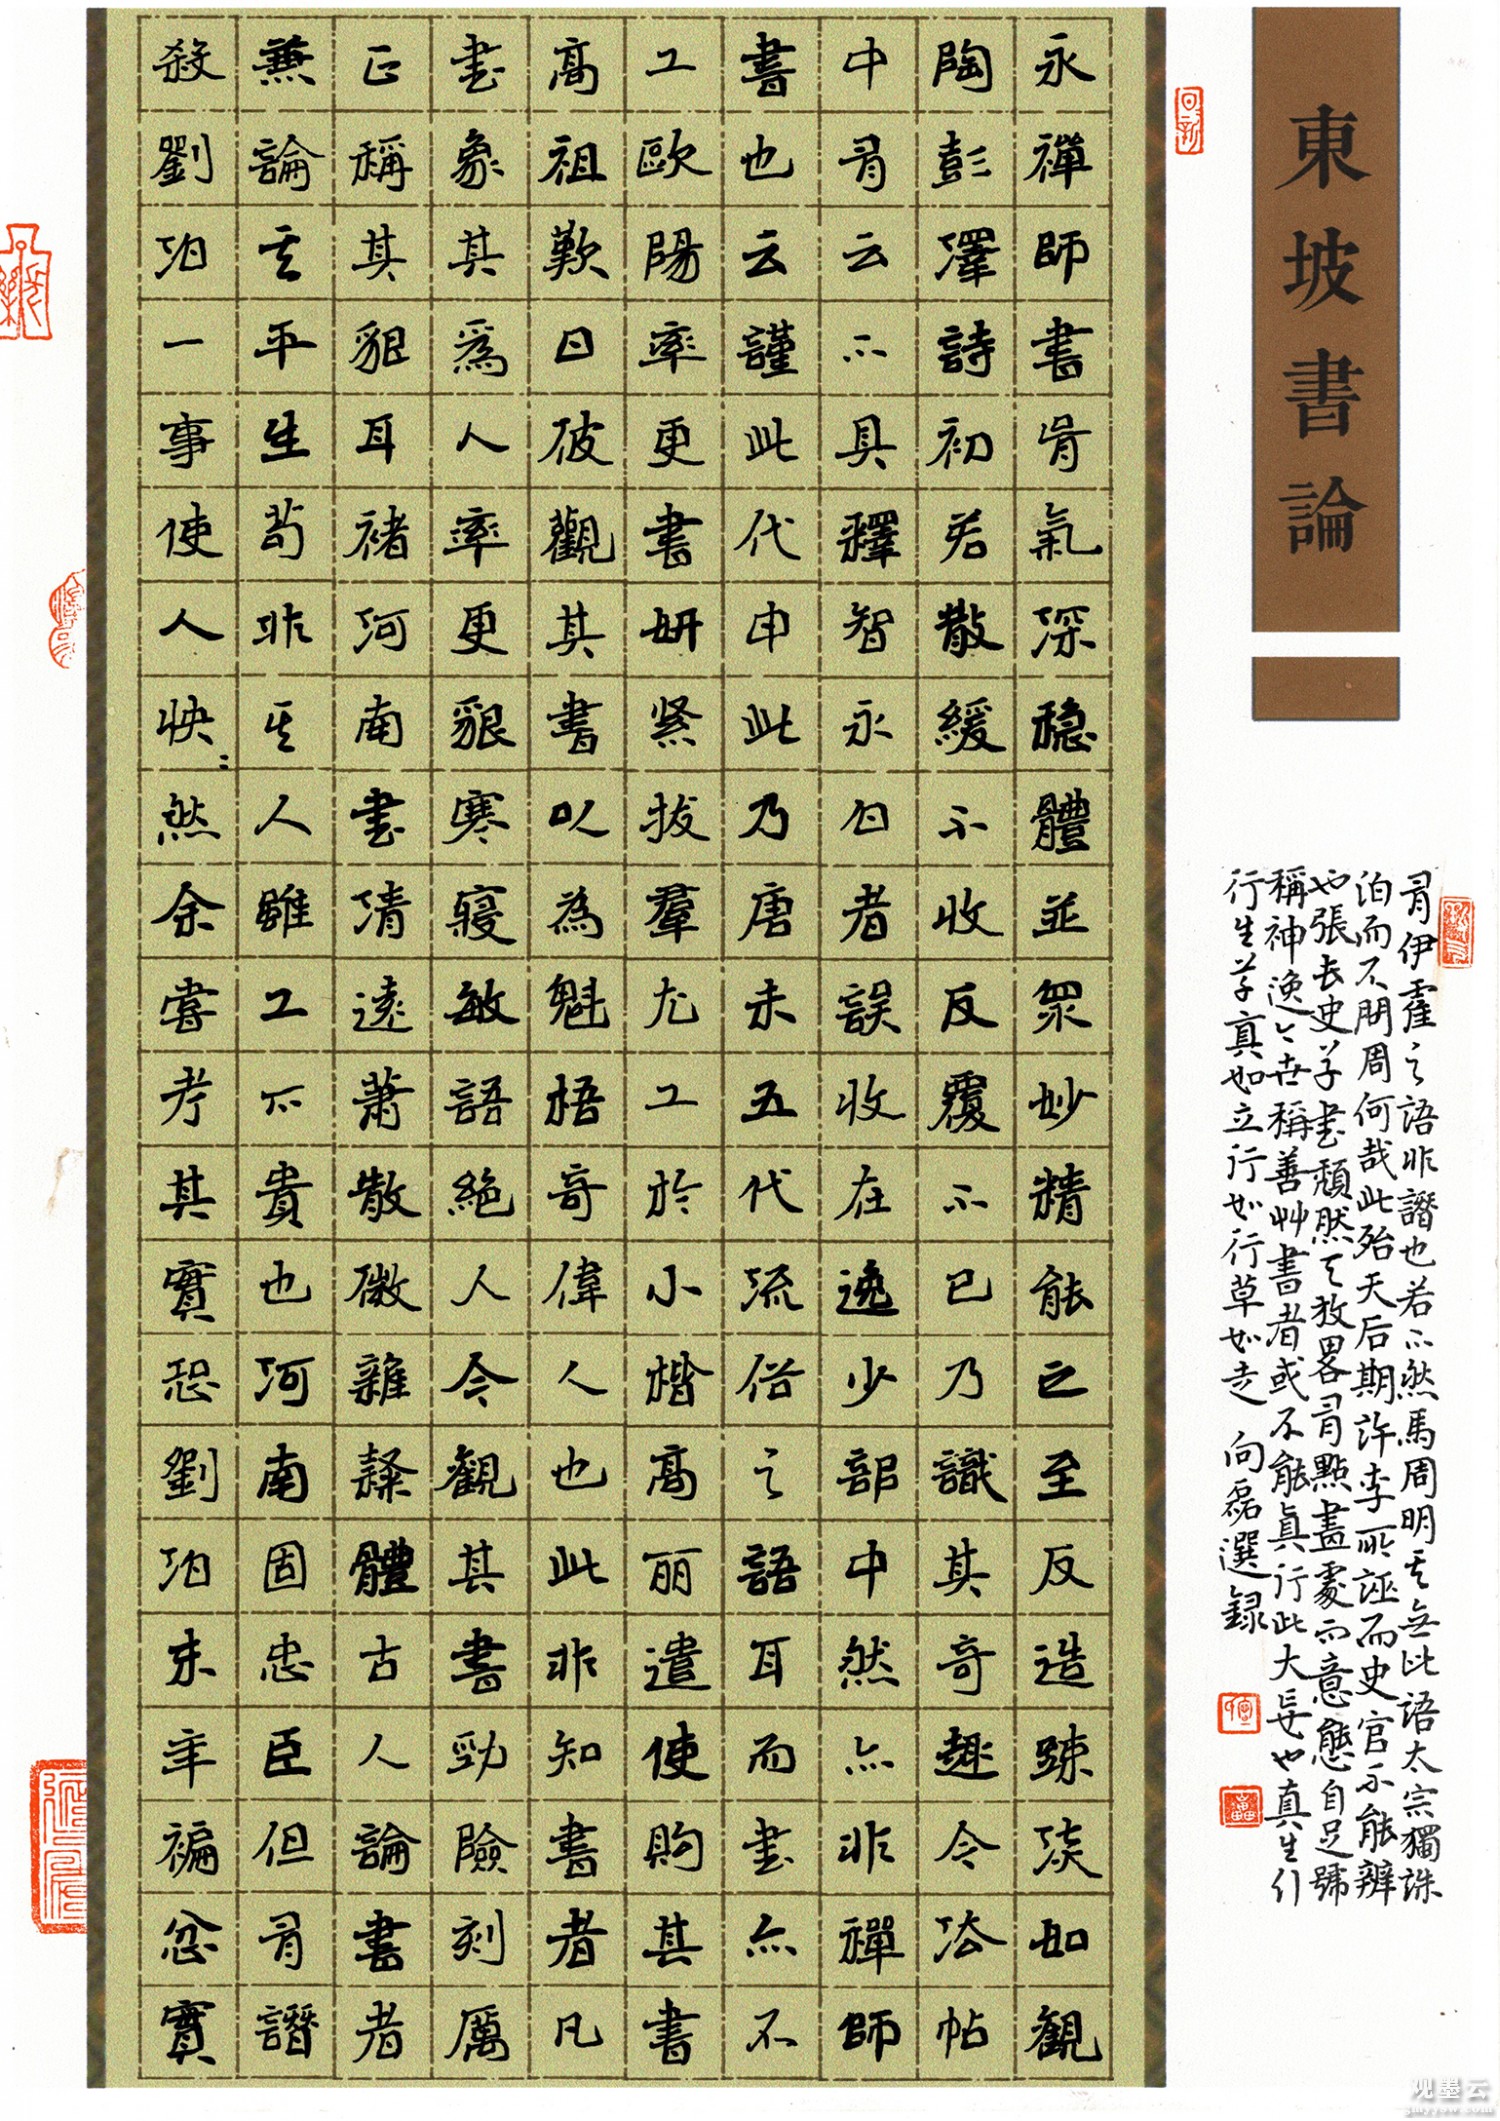 東坡書論
永禪師書骨氣深穩體並眾妙精能之至反造疎淡如觀
陶彭澤詩初若散緩不收反覆不已乃識其奇趣今法帖
中有云不具釋智永白者誤收在逸少部中然亦非禪師
書也云謹此代申此乃唐末五代流俗之語耳而書亦不
工歐陽率更書妍緊拔羣尤工於小楷高丽遣使購其書
高祖歎曰彼觀其書以為魁梧奇偉人也此非知書者凡
書象其爲人率更貌寒寢敏語絕人今觀其書勁險刻厲
正稱其貌耳褚河南書清遠蕭散微雜隸體古人論書者
兼論其平生苟非其人雖工不貴也河南固忠臣但有譖
殺劉洎一事使人怏:然余嘗考其實恐劉洎末年褊忿實
有伊霍之語非譖也若不然馬周明其無此語太宗獨誅
洎而不問周何哉此殆天后期許李所誣而史官不能辨
也張長史草書頹然天放畧有點畫處而意態自足號
稱神逸今世稱善艸書者或不能真行此大妄也真生行
行生草真如立行如行草如走 向磊選録
观墨云